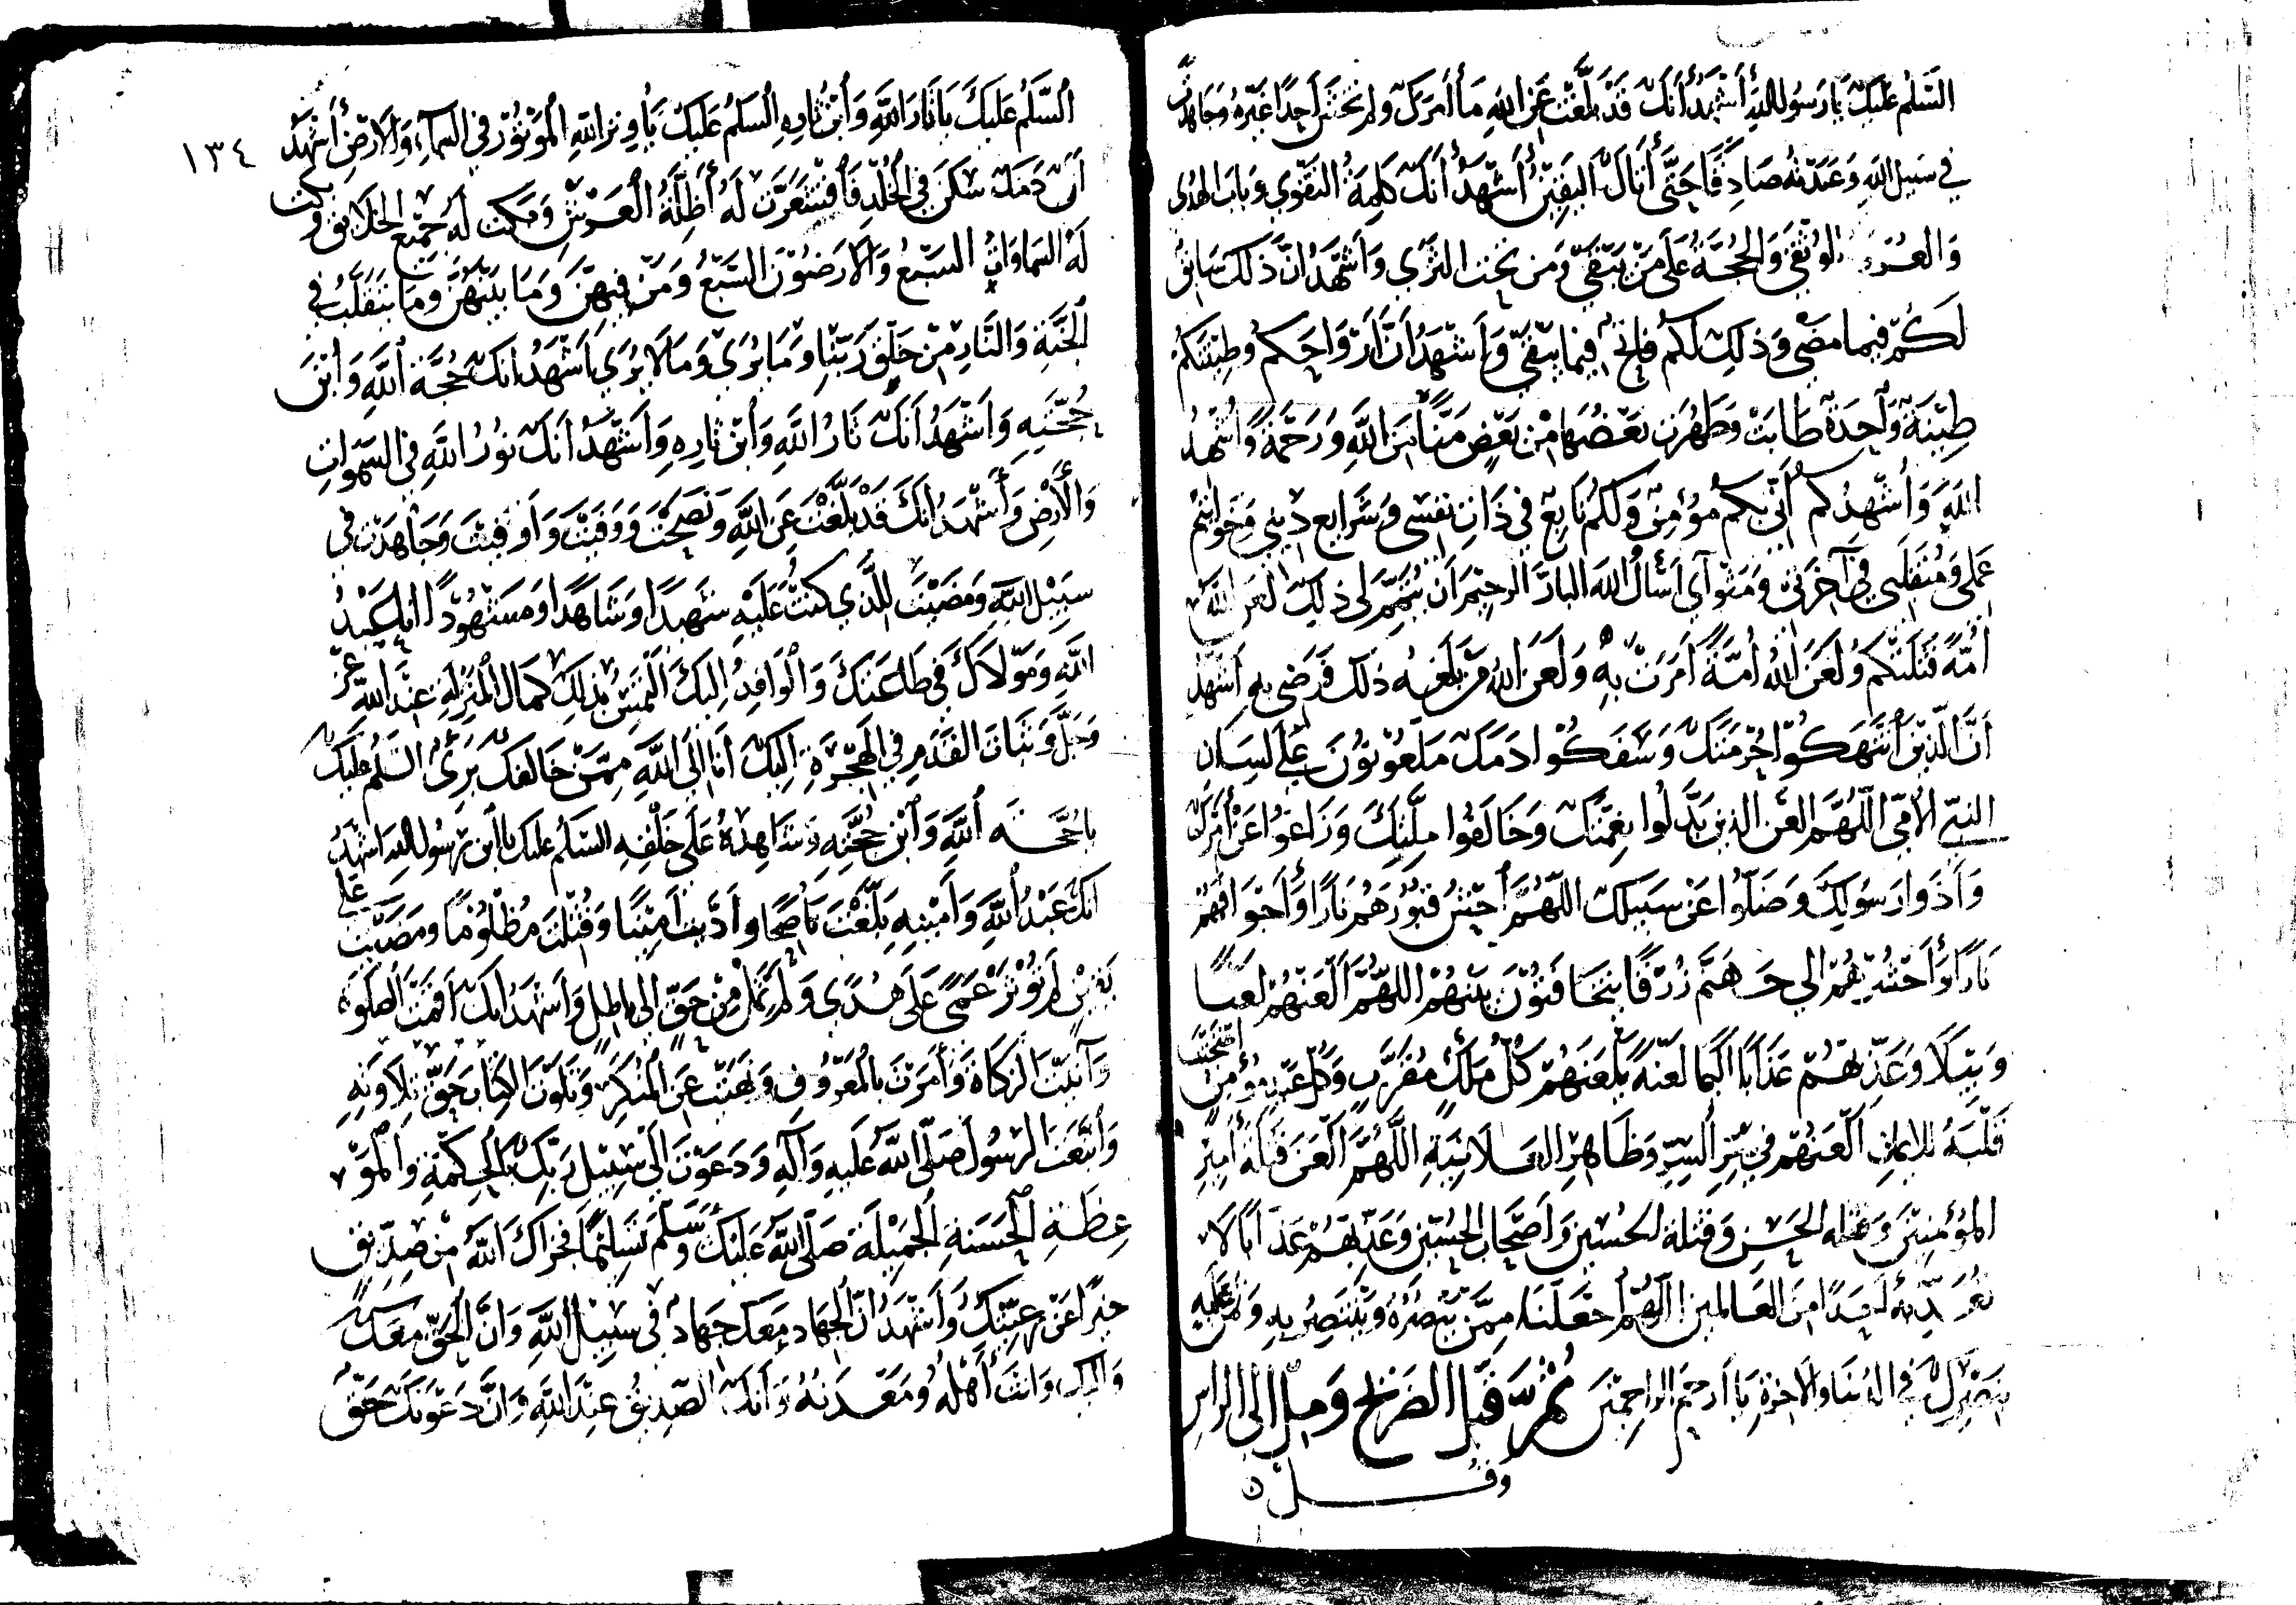 السلم عليك يا رسول الله أشهد أنك قد بلغت عن الله ما أمرك ولم تخش أحدا غيره وجاهدت
في سبيل الله وعبدته صادقا حتى أتاك اليقين أشهد أنك كلمة التقوي وباب الهدى
والعروة الوثقى والحجة على من يبقى ومن تحت الثري وأشهد ان ذلك سابق
لكم فيما مضى وذلك لكم فاتح فيما يبقى وأشهد أن أرواحكم وطينتكم
طينة واحدة طابت وطهرت بعضها من بعض منا من الله ورحمة وأشهد
الله وأشهدكم أني بكم مؤمن ولكم تابع في ذات نفسى وشرايع ديني وخواتيم
عملى ومنقلبي في آخرتي ومثواي أسأل الله البار الرحيم أن يتمم لى ذلك لعن الله
أمة قتلتكم ولعن الله أمة أمرت به ولعن الله من بلغه ذلك فرضى به اشهد
أن الذين انتهكوا حرمتك وسفكوا دمك ملعونون على لسان
النبي الأمي اللهم العن الذين بدلوا نعمتك وخالفوا ملتك ورغبوا عن أمرك
وآذوا رسولك وصدوا عن سبيلك اللهم احش قبورهم نارا وأجوافهم
نارا وأحشرهم الي جهنم زرقا يتخافتون بينهم اللهم العنهم لعنا
وبيلا وعذبهم عذابا أليما لعنة يلعنهم كل ملك مقرب وكل عبد مؤمن امتحنت
قلبه للايمان العنهم في مستسر السر وظاهر العلانية اللهم العن قتلة أمير
المؤمنين وقتلة الحسن وقتلة الحسين وأصحاب الحسين وعذبهم عذابا لا
تعذبه أحدا من العالمين اللهم اجعلنا ممن ينصره وينتصر به وتمن عليه
بنصرك في الدنيا والاخرة يا أرحم الراحمين ثم سر قبل الضريح ومل إلى الراس
وقل
١٣٤
السلم عليك يا ثار الله وابن ثاره السلم عليك يا وتر الله الموتور في السماء والارض أشهد
أن دمك سكن في الخلد فاقشعرت له أظلة العرش وبكت له جميع الخلايق وبكت
له السماوات السبع والارضون السبع ومن فيهن وما بينهن وما يتقلب في
الجنة والنار من خلق ربنا وما يرى وما لا يرى أشهد أنك حجة الله وابن
حجته وأشهد أنك ثار الله وابن ثاره وأشهد أنك نور الله في السموات
والأرض وأشهد انك قد بلغت عن الله ونصحت ووفيت وأوفيت وجاهدت في
سبيل الله ومضيت للذي كنت عليه شهيدا وشاهدا ومشهودا انا عبد
الله ومولاك في طاعتك والوافد إليك ألتمس بذلك كمال المنزلة عند الله عز
وجل وثبات القدم في الهجرة إليك أنا إلى الله ممن خالفك بريء السلم عليك
يا حجة الله وابن حجته وشاهده على خلقه السلم عليك يا ابن رسول الله اشهد
انك عبد الله وأمينه بلغت ناصحا وأديت أمينا وقتلت مظلوما ومضيت على
يقين لم تؤثر عمى على هدى ولم تمل من حق إلى باطل وأشهد انك أقمت الصلوة
وآتيت الزكاة وأمرت بالمعروف ونهيت عن المنكر وتلوت الكتاب حق تلاوته
واتبعت الرسول صلى الله عليه وآله ودعوت إلى سبيل ربك بالحكمة والمو
عظة الحسنة الجميلة صلى الله عليك وسلم تسليما فجزاك الله من صديق
خيرا عن رعيتك وأشهد ان الجهاد معك جهاد في سبيل الله وان الحق معك
واليك وانت أهله ومعدنه وأنك الصديق عند الله وان دعوتك حق